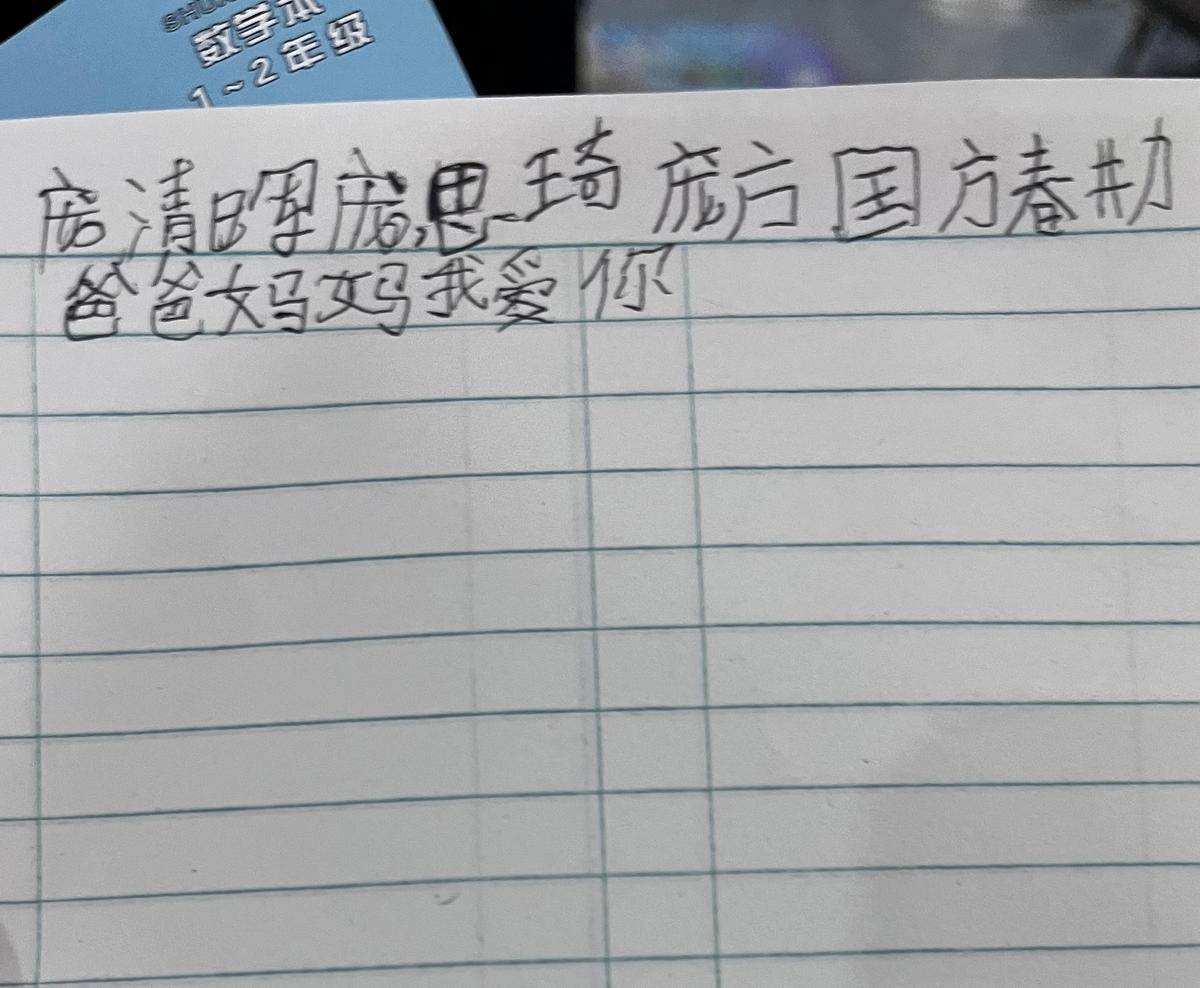 数学本
1~2年级
庞清晖庞思琦庞方国方春
爸爸妈妈我爱你